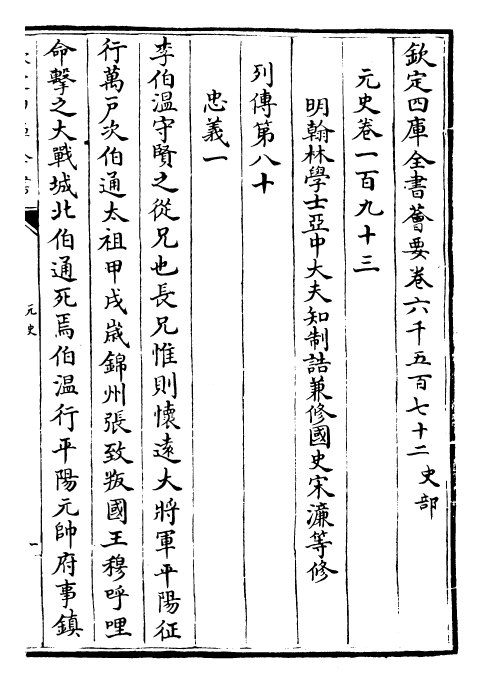 欽定四庫全書薈要卷六千五百七十二 史部
元史卷一百九十三
明翰林學士亞中大夫知制誥兼修國史宋濂等修
列傳第八十
忠義一
李伯溫守賢之從兄也長兄惟則懷遠大將軍平陽征
行萬戶次伯通太祖甲戌歲錦州張致叛國王穆呼哩
命擊之大戰城北伯通死焉伯溫行平陽元帥府事鎮
元史
一